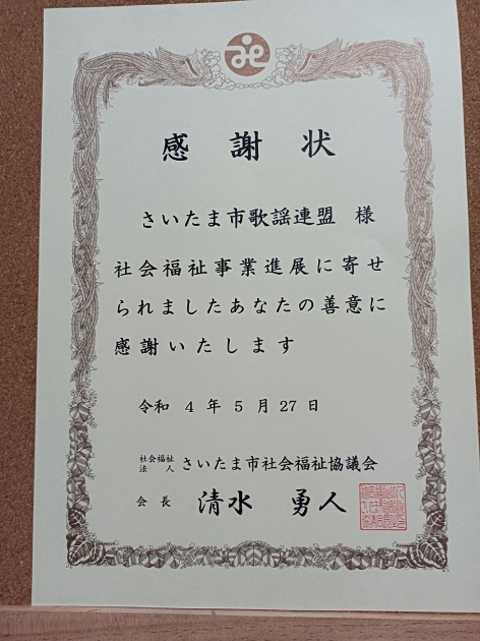 感謝状
さいたま市歌謡連盟 様
社会福祉事業進展に寄せ
られましたあなたの善意に
感謝いたします
令和 4 年 5 月 27 日
社会福祉
法人 さいたま市社会福祉協議会
会長 清水 勇人